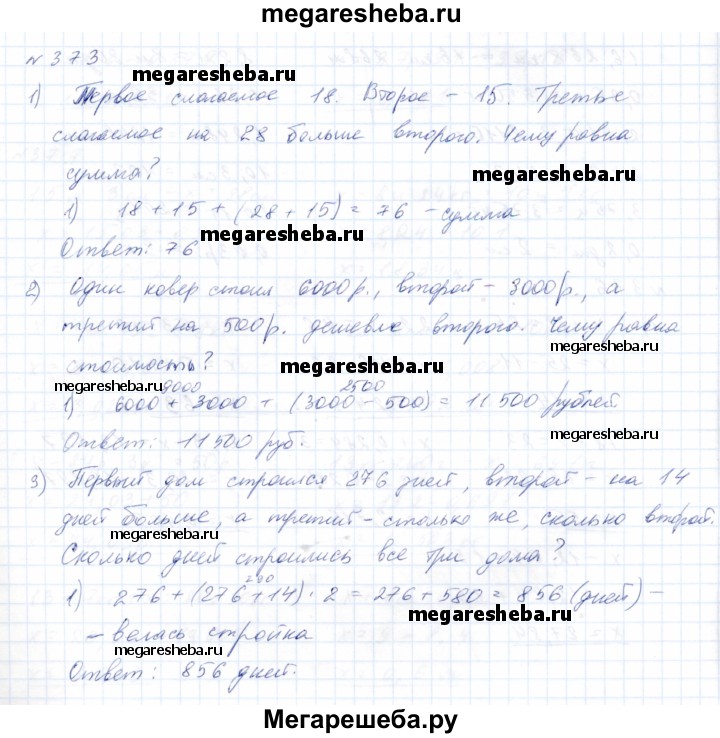 megaresheba.ru
№ 373
megaresheba.ru
1) Первое слагаемое 18. Второе – 15. Третье
слагаемое на 28 больше второго. Чему равна
megaresheba.ru
сумма?
1) 18 + 15 + (28 + 15) = 76 – сумма
megaresheba.ru
Ответ: 76
2) Один ковер стоил 6000р., второй – 3000р., а
третий на 500р. дешевле второго. Чему равна
стоимость?
megaresheba.ru
megaresheba.ru
9000 2500
1) 6000 + 3000 + (3000 – 500) = 11 500 рублей
megaresheba.ru
Ответ: 11500 руб.
3) Первый дом строился 276 дней, второй – на 14
дней больше, а третий – столько же, сколько второй.
megaresheba.ru
Сколько дней строились все три дома?
290
1) 276 + (276 + 14) · 2 = 276 + 580 = 856 (дней) –
megaresheba.ru
– велась стройка
megaresheba.ru
Ответ: 856 дней.
Мегарешеба.ру